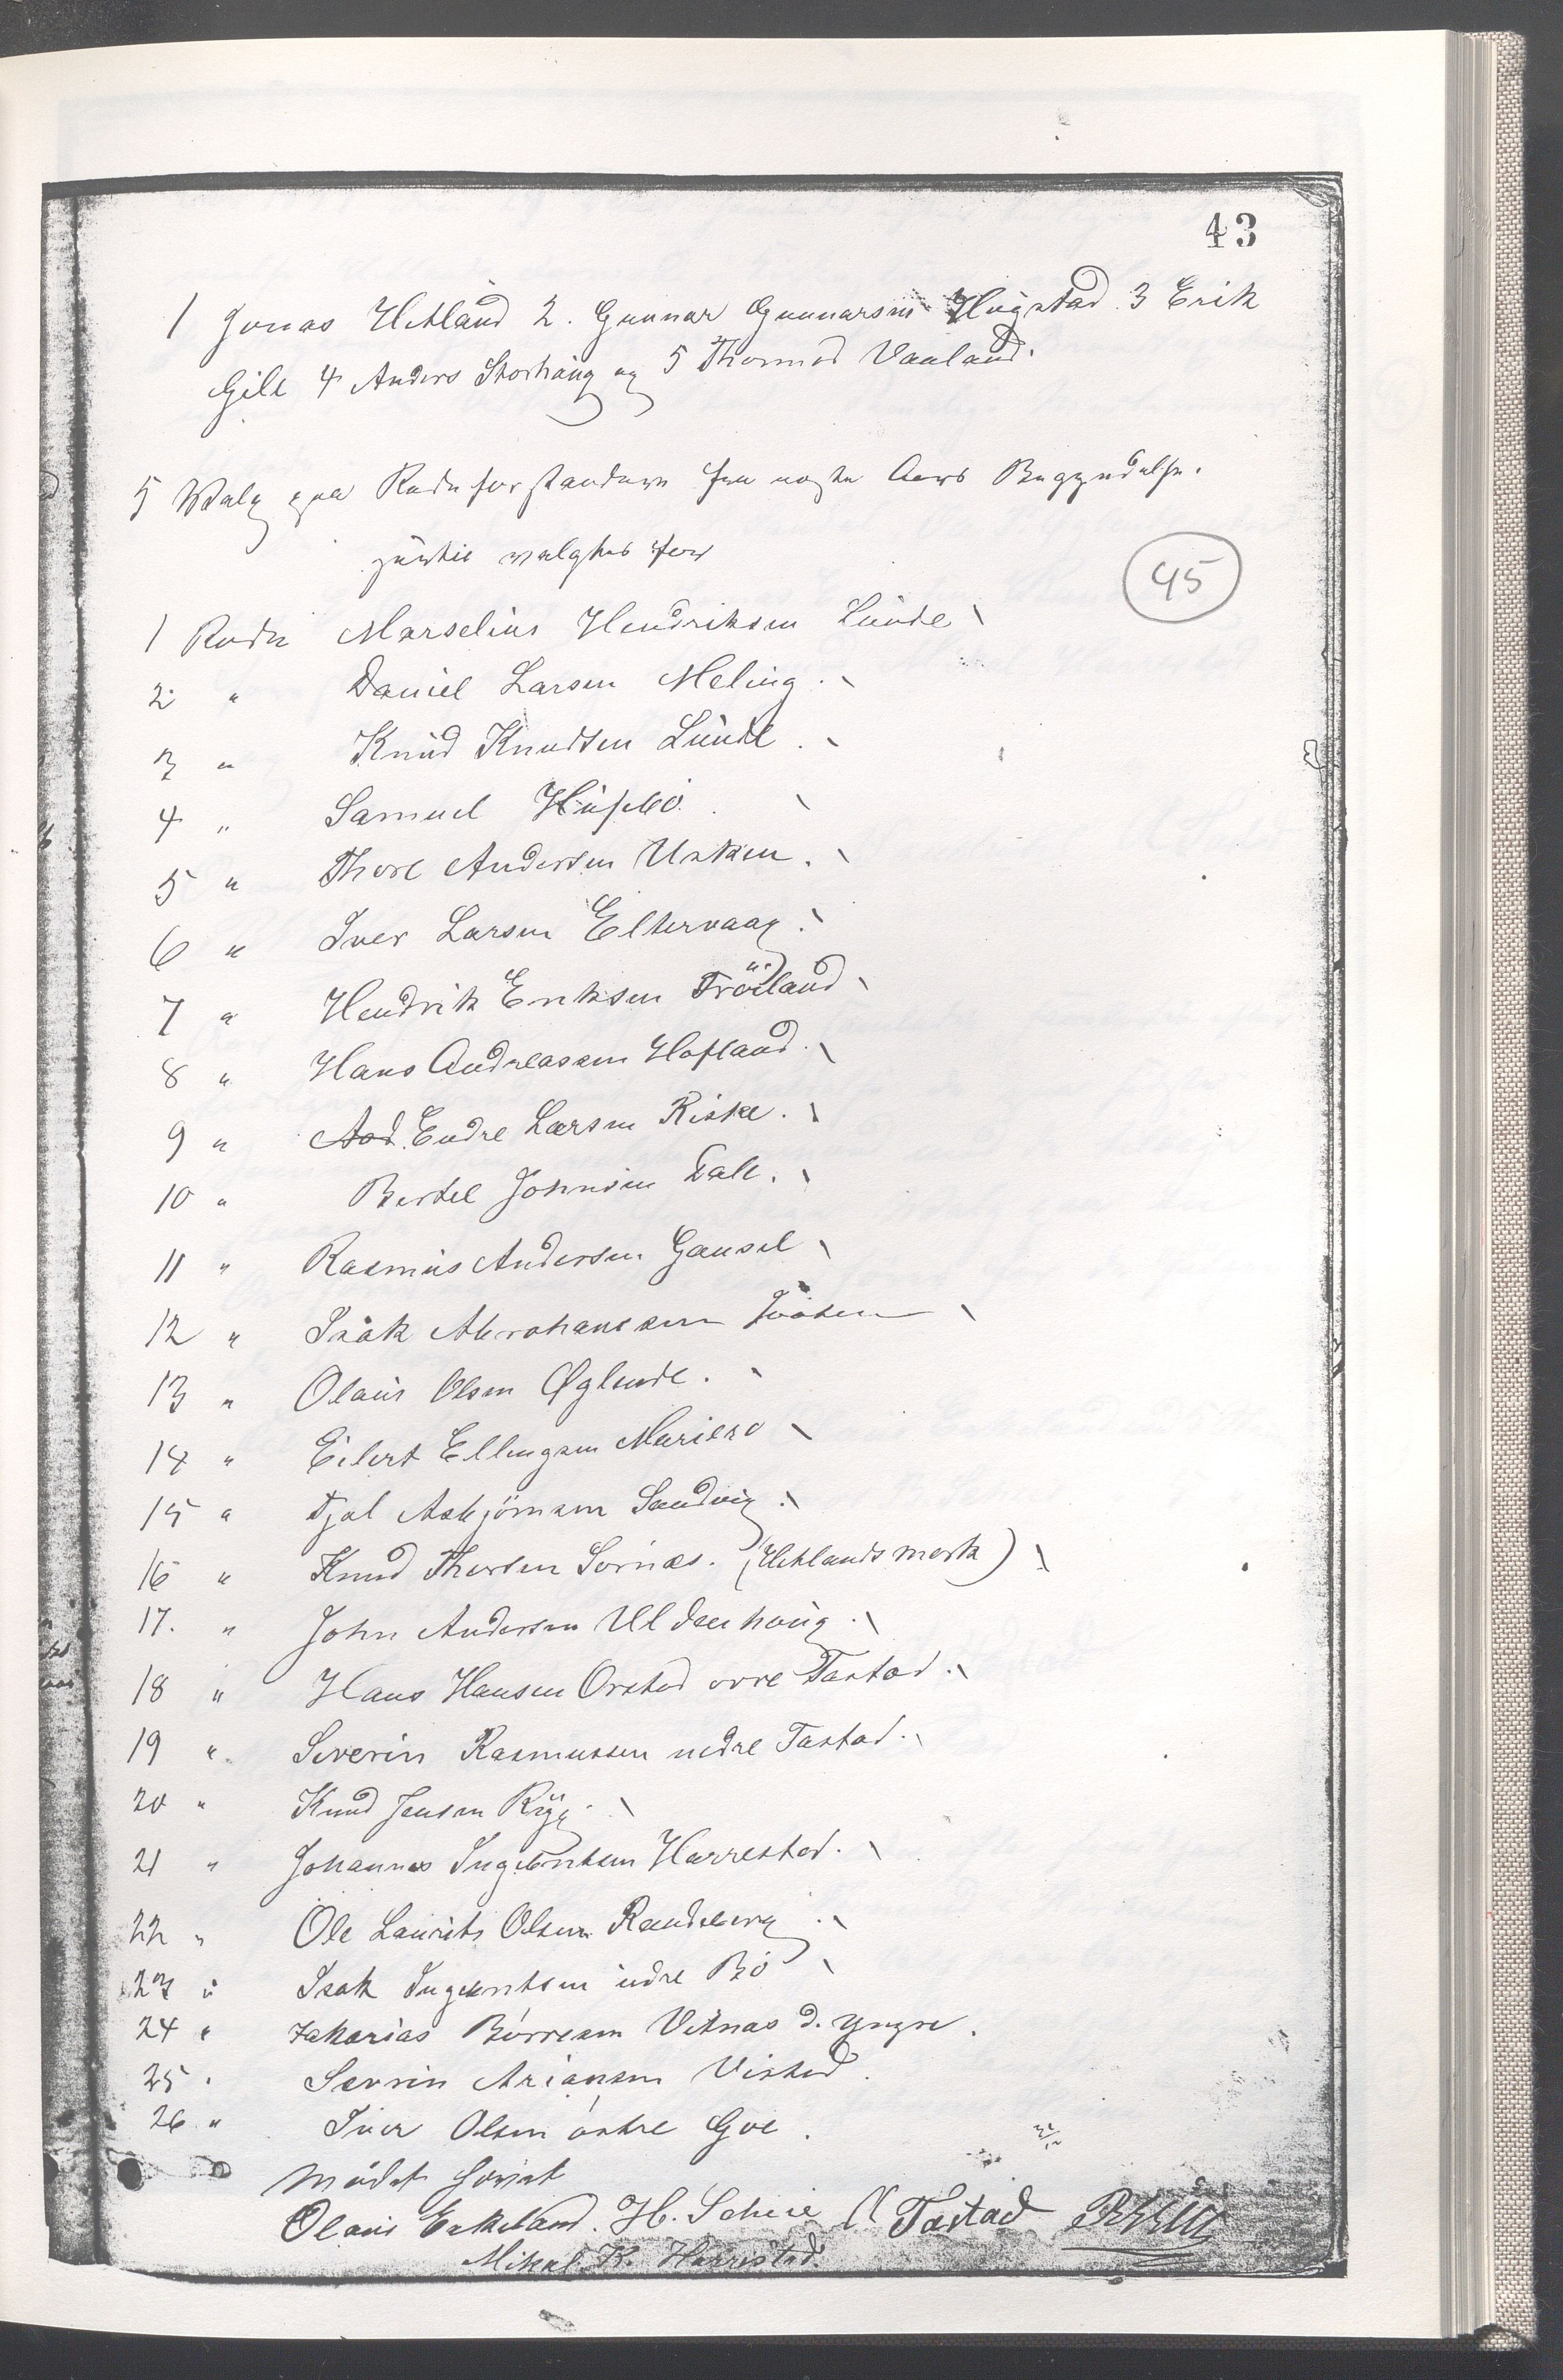 43
1 Jonas Hetland 2. Gunnar Gunnarsen Haugstad 3 Erik
Gilt 4 Anders Storhaug og 5 Thormod Vauland.
5 Valg paa Rodeforstandere fra neste Aars Begyndelse.
hertil valgtes for
45
1 Rode Marselius Hendriksen Lunde
2 " Daniel Larsen Meling.
3 " Knud Knudsen Lunde.
4 " Samuel Husebö.
5 " Thore Andersen Utsken.
6 " Iver Larsen Eltervaag.
7 " Hendrik Eriksen Fröiland
8 " Hans Andreassen Hofland.
9 " Aad. Endre Larsen Riske.
10 " Bertel Johnsen Dale.
11 " Rasmus Andersen Gausel
12 " Isak Abrahamsen
13 " Olaus Olsen Øglende.
14 " Eilert Ellingsen Mariero
15 " Asbjörnsen Sandvig.
16 " Knud Thorsen Sörnæs. (Hetlandsmark)
17. " John Andersen Ullenhaug.
18 " Hans Hansen Orstad ovre Tastad.
19 " Severin Rasmussen nedre Tastad.
20 " Knud Jensen Rÿg.
21 " Johannes Ingebritsen Harrestad.
22 " Ole Laurits Olsen Randeberg.
23 " Isak Ingebritsen indre Bö
24 " Zakarias Börresen Vitnæs d. yngre.
25 " Severin Ariansen Vistad.
26 " Iver Olsen östre Goe.
Mödet hævet
Olaus Eskeland. H. Scheie Tastad
Mikal K. Harrestad.